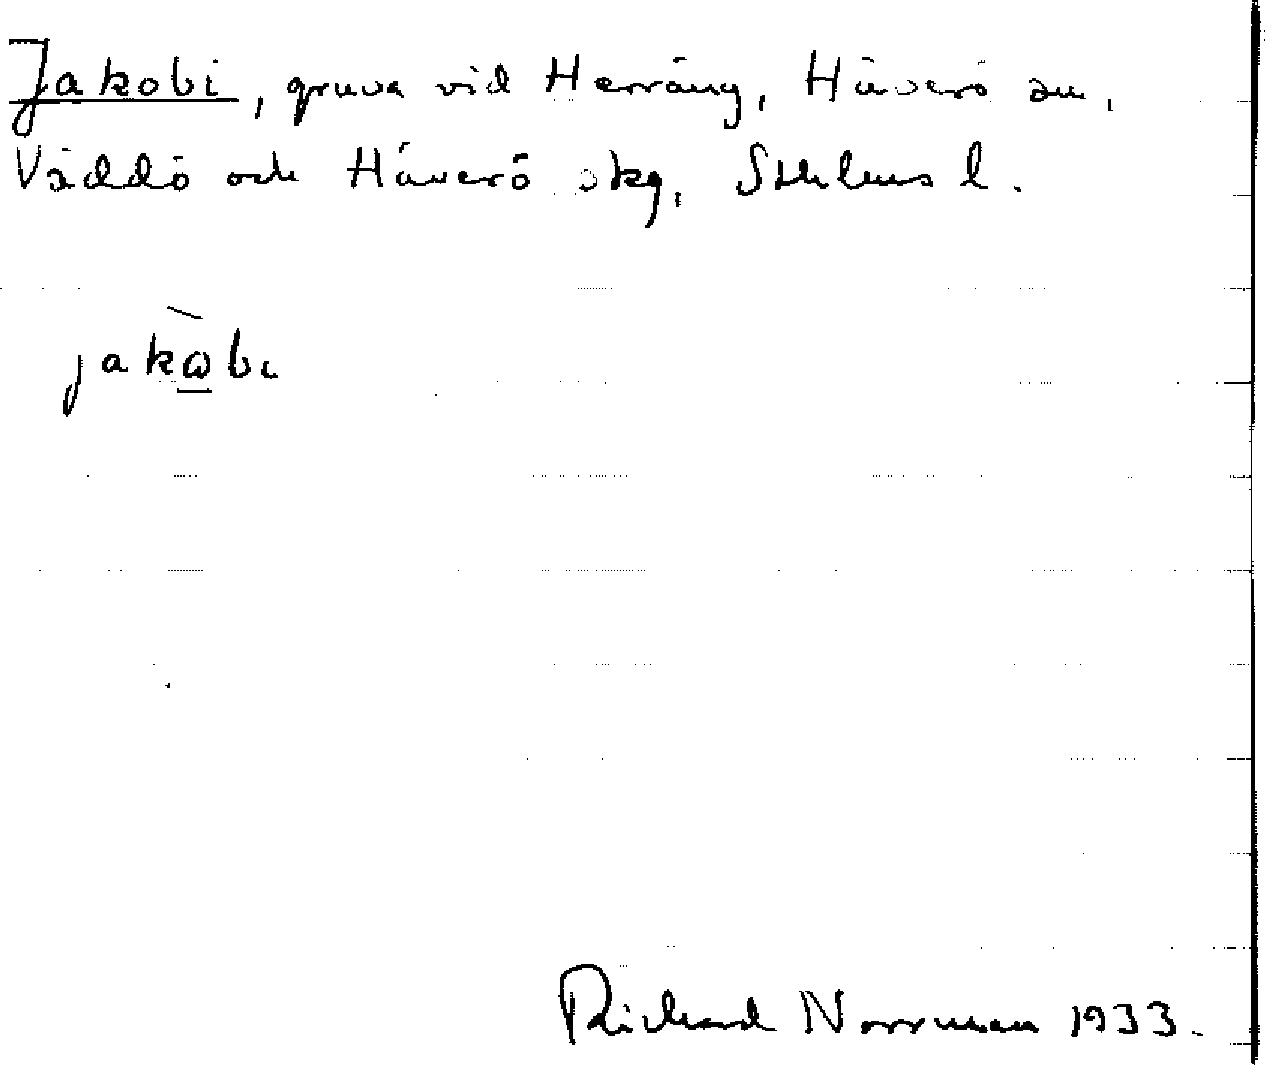 Jakobi, gruva vid Herräng, Häverö sn,
Väddö och Häverö skg, Sthlms l.
jakòbi
Richard Norrman 1933.